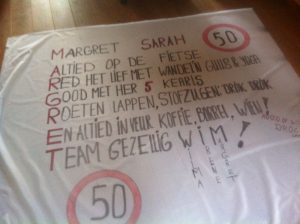 MARGRET SARAH 50
ALTIED OP DE FIETSE
RED HET LIEF MET WANDELN
GOOD MET HER 5 KEARLS
ROETEN LAPPEN, STOFZUGEN: DRUK DRUK
EN ALTIED IN VEUR KOFIE, BORREL, WIEN!
TEAM GEZELLIG WIM!
50